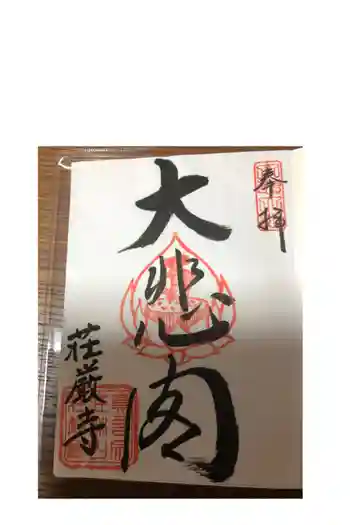 奉拝
大悲閣
荘厳寺